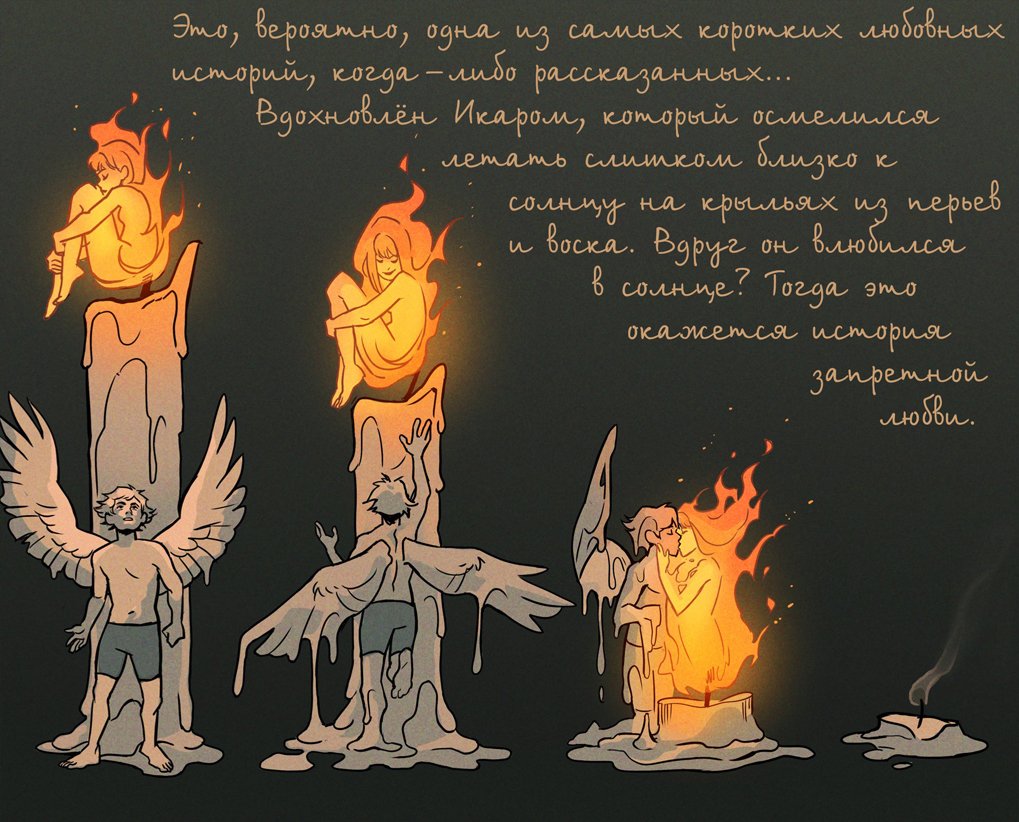 Это, вероятно, одна из самых коротких любовных
историй, когда-либо рассказанных...
Вдохновлён Икаром, который осмелился
летать слишком близко к
солнцу на крыльях из перьев
и воска. Вдруг он влюбился
в солнце? Тогда это
окажется история
запретной
любви.